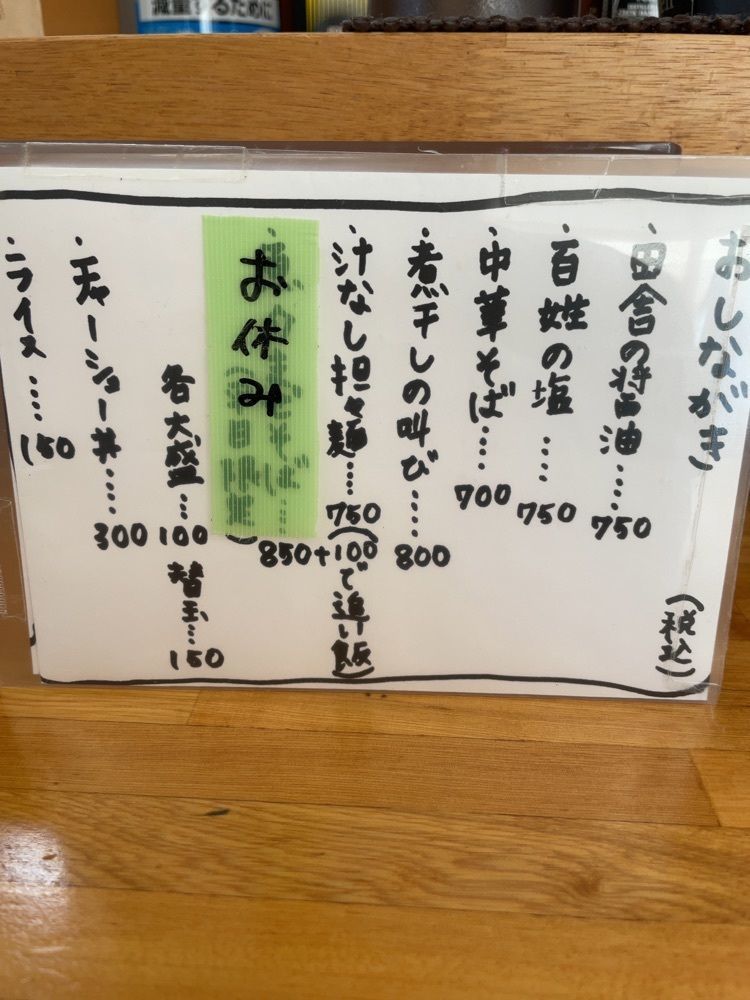 減量するために
おしながき
(税込)
・田舎の醤油……750
・百姓の塩……750
・中華そば……700
・煮干しの叫び……800
・汁なし担々麺……750
(+100で追い飯)
お休み
そば……850
各大盛…100
替玉…150
・チャーシュー丼……300
・ライス……150